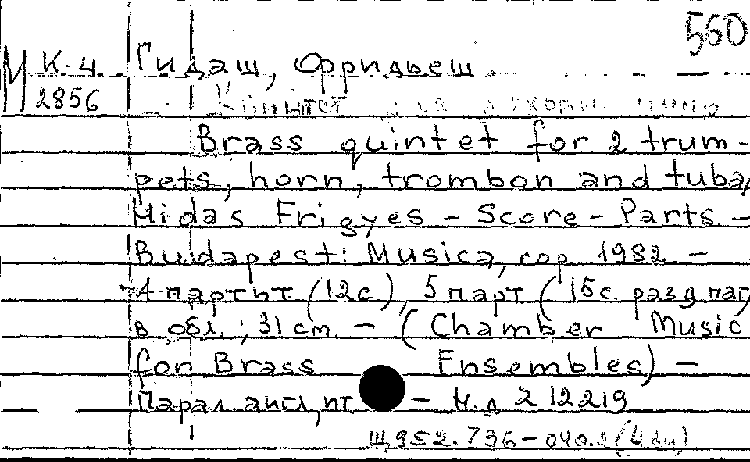 560
М К-4 Гидаш, Фридьеш
2856 Квинтет для духовых
Brass quintet for 2 trum-
pets, horn, trombon and tuba/
Hidas Frigyes - Score - Parts -
Budapest: Musica, cop 1982 -
партит (12с), 5 парт (15с. разд паг)
в обл.; 31 cm. - (Chamber Music
for Brass Ensembles) -
Парал англ, - Н.д Z 12219
Щ952.736-040.